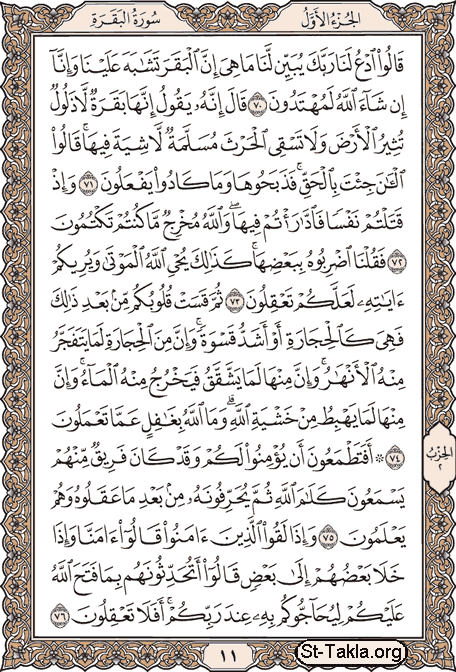 الجزء الأول
سورة البقرة
قَالُوا۟ ٱدْعُ لَنَا رَبَّكَ يُبَيِّن لَّنَا مَا هِىَ إِنَّ ٱلْبَقَرَ تَشَٰبَهَ عَلَيْنَا وَإِنَّآ
إِن شَآءَ ٱللَّهُ لَمُهْتَدُونَ ٧٠ قَالَ إِنَّهُۥ يَقُولُ إِنَّهَا بَقَرَةٌ لَّا ذَلُولٌ
تُثِيرُ ٱلْأَرْضَ وَلَا تَسْقِى ٱلْحَرْثَ مُسَلَّمَةٌ لَّا شِيَةَ فِيهَا ۚ قَالُوا۟
ٱلْـَٰٔنَ جِئْتَ بِٱلْحَقِّ ۚ فَذَبَحُوهَا وَمَا كَادُوا۟ يَفْعَلُونَ ٧١ وَإِذْ
قَتَلْتُمْ نَفْسًا فَٱدَّٰرَْٰٔتُمْ فِيهَا ۖ وَٱللَّهُ مُخْرِجٌ مَّا كُنتُمْ تَكْتُمُونَ
٧٢ فَقُلْنَا ٱضْرِبُوهُ بِبَعْضِهَا ۚ كَذَٰلِكَ يُحْىِ ٱللَّهُ ٱلْمَوْتَىٰ وَيُرِيكُمْ
ءَايَٰتِهِۦ لَعَلَّكُمْ تَعْقِلُونَ ٧٣ ثُمَّ قَسَتْ قُلُوبُكُم مِّنۢ بَعْدِ ذَٰلِكَ
فَهِىَ كَٱلْحِجَارَةِ أَوْ أَشَدُّ قَسْوَةً ۚ وَإِنَّ مِنَ ٱلْحِجَارَةِ لَمَا يَتَفَجَّرُ
مِنْهُ ٱلْأَنْهَٰرُ ۚ وَإِنَّ مِنْهَا لَمَا يَشَّقَّقُ فَيَخْرُجُ مِنْهُ ٱلْمَآءُ ۚ وَإِنَّ
مِنْهَا لَمَا يَهْبِطُ مِنْ خَشْيَةِ ٱللَّهِ ۗ وَمَا ٱللَّهُ بِغَٰفِلٍ عَمَّا تَعْمَلُونَ
٧٤ ۞ أَفَتَطْمَعُونَ أَن يُؤْمِنُوا۟ لَكُمْ وَقَدْ كَانَ فَرِيقٌ مِّنْهُمْ
الحزب
٢
يَسْمَعُونَ كَلَٰمَ ٱللَّهِ ثُمَّ يُحَرِّفُونَهُۥ مِنۢ بَعْدِ مَا عَقَلُوهُ وَهُمْ
يَعْلَمُونَ ٧٥ وَإِذَا لَقُوا۟ ٱلَّذِينَ ءَامَنُوا۟ قَالُوٓا۟ ءَامَنَّا وَإِذَا
خَلَا بَعْضُهُمْ إِلَىٰ بَعْضٍ قَالُوٓا۟ أَتُحَدِّثُونَهُم بِمَا فَتَحَ ٱللَّهُ
عَلَيْكُمْ لِيُحَآجُّوكُم بِهِۦ عِندَ رَبِّكُمْ ۚ أَفَلَا تَعْقِلُونَ ٧٦
١١
St-Takla.org